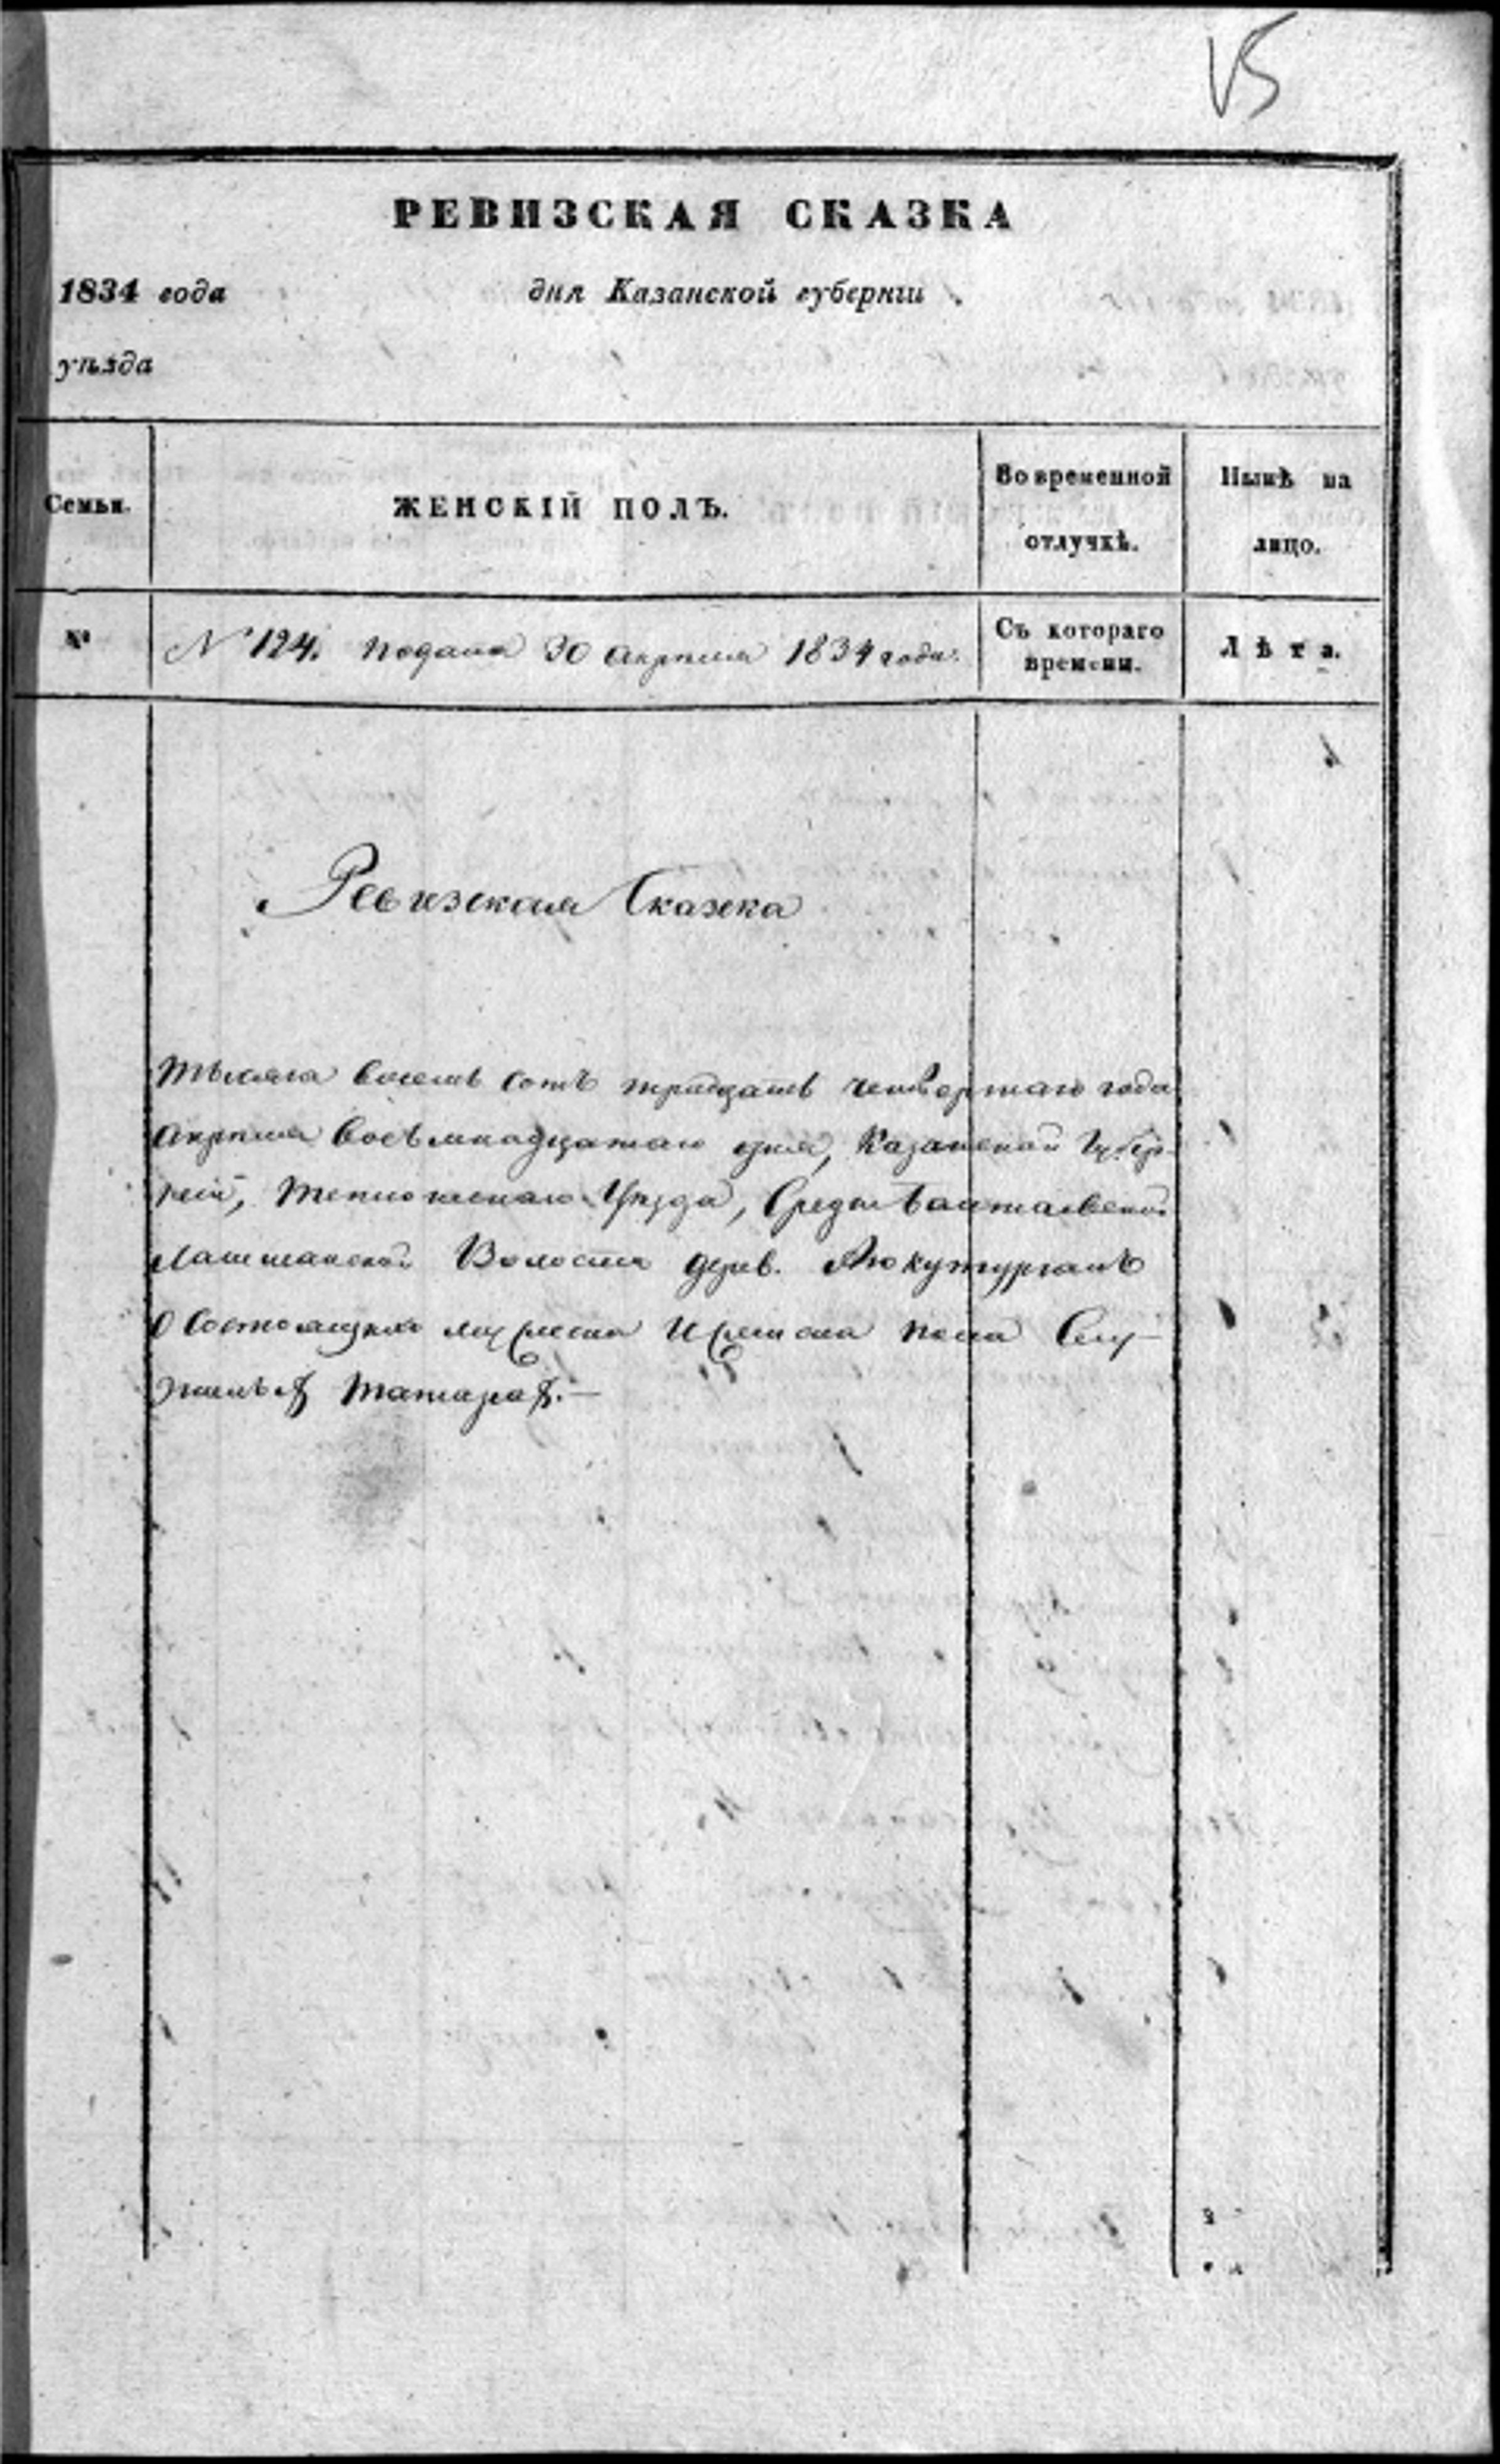 15
РЕВИЗСКАЯ СКАЗКА
1834 года дня Казанской губернiи
уѣзда
Семьи. ЖЕНСКIЙ ПОЛЪ. Во временной отлучкѣ. Нынѣ на лицо.
№ № 124. подана 30 апреля 1834 года. Съ котораго времени. Лѣта.
Ревизская Сказка
Тысяча восемь сотъ тридцать четвертаго года
апреля восемьнадцатаго дня, Казанской Губер-
нiй, Тетюшскаго Уезда, Средне Балтаевской
Лашманской Волости дерев.
о состоящихъ мужеска и женска пола Слу-
жилыхъ Татарахъ. —